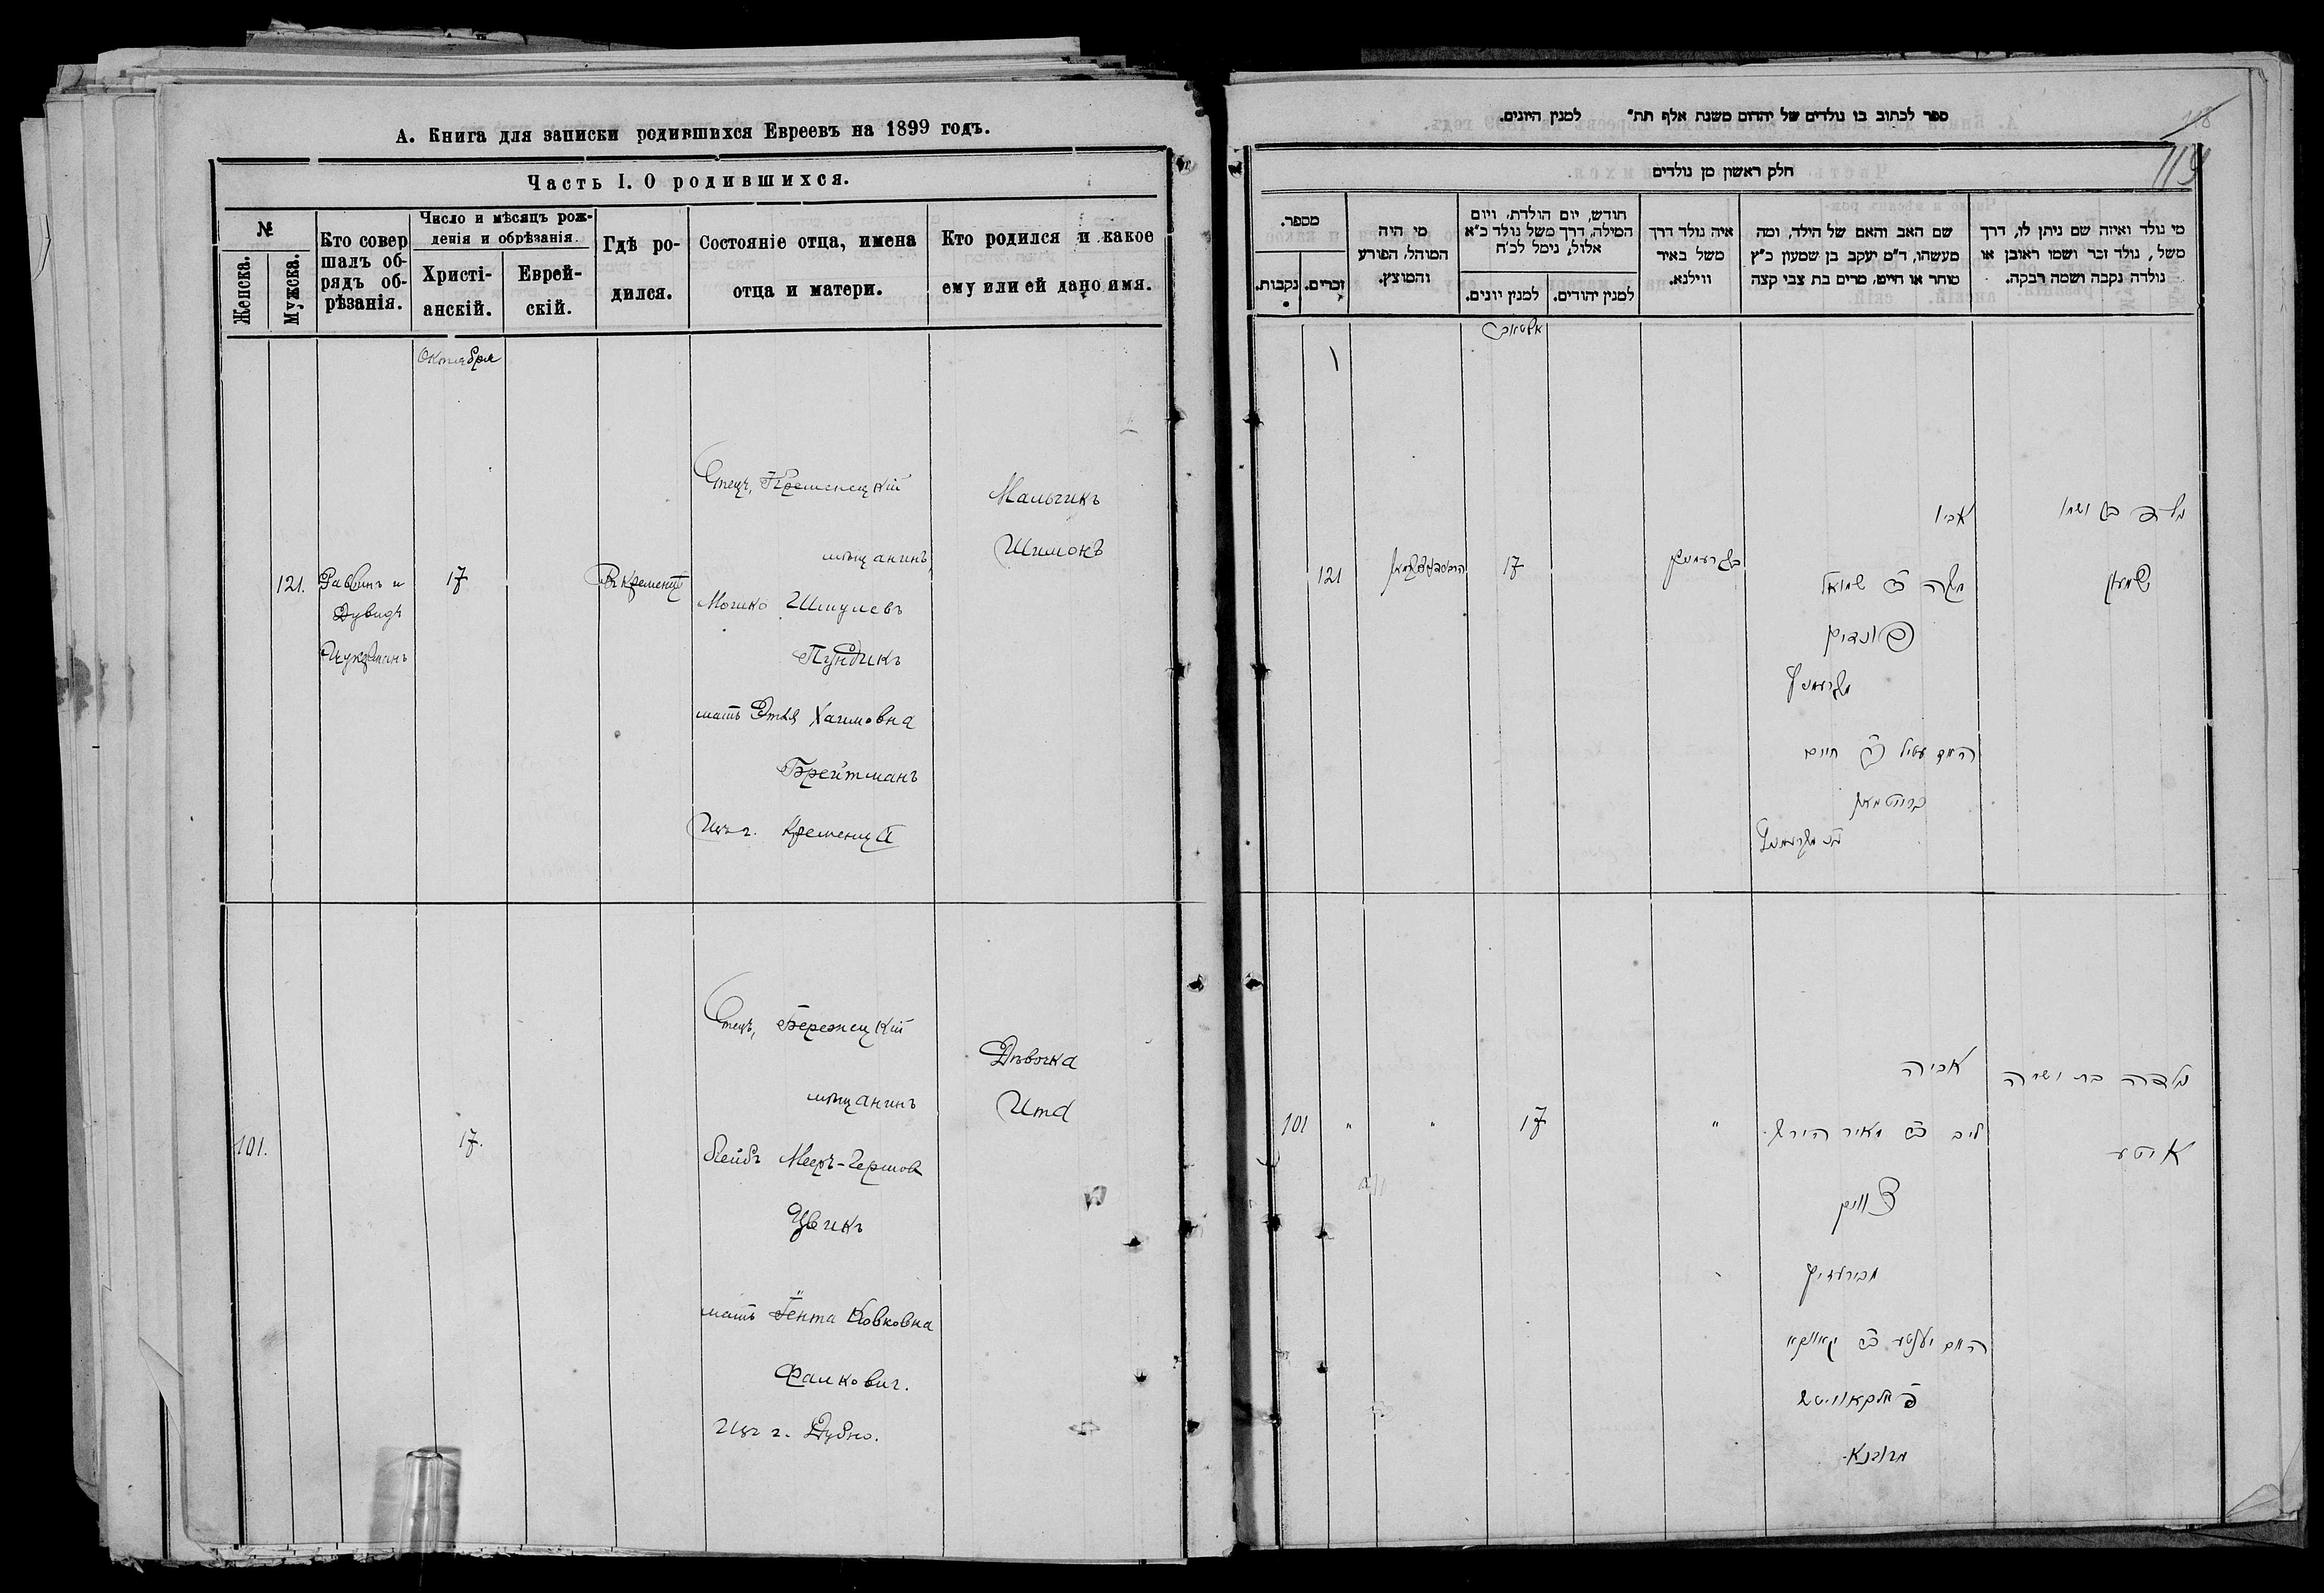 А. Книга для записки родившихся Евреевъ на 1899 годъ.
Часть I. О родившихся.
№
Женска.
Мужска.
Кто совер
шалъ об-
рядъ об-
рѣзанія.
Число и мѣсяцъ рож-
денія и обрѣзанія.
Христі-
анскій.
Еврей-
скій.
Гдѣ ро-
дился.
Состояніе отца, имена
отца и матери.
Кто родился и какое
ему или ей дано имя.
Октября
121.
Раввинъ и
Дувидъ
Цукерманъ
17
Въ Кременцѣ
Отецъ, Кременецкій
мѣщанинъ
Мошко Шмулевъ
Пундикъ
мать Этля Хаимовна
Брейтманъ
Изъ г. Кременца
Мальчикъ
Шимонъ
101.
17.
Отецъ, Бережецкій
мѣщанинъ
Лейбъ Мееръ-Гершовъ
Цвикъ
мать Гента Ковковна
Фалковичъ.
Изъ г. Дубно.
Дѣвочка
Ита
ספר לכתוב בו נולדים של יהדום משנת אלף תת״ למנין היונים.
118
119
חלק ראשון מן נולדים
מספר.
נקבות.
זכרים.
מי היה
המוהל, הפורע
והמוצץ.
חודש, יום הולדת, ויום
המילה, דרך משל נולד כ״א
אלול, נימל לכ׳ח
למנין יונים.
למנין יהודים.
איה נולד דרך
משל באיר
ווילנא.
שם האב והאם של הילד, ומה
מעשהו, ד״ם יעקב בן שמעון כ״ץ
סוחר או חייט, מרים בת צבי קצה
מי נולד ואיזה שם ניתן לו, דרך
משל, נולד זכר ושמו ראובן או
נולדה נקבה ושמה רבקה.
אקטאבר
121
17
בקרעמניץ
אביו
משה ב״ר שמואל
פונדיק
מקרעמניץ
חיים
ברייטמאן
מקרעמניץ
נולד בן ושמו
שמעון
101
"
"
17
"
אביה
ליב ב״ר מאיר הירש
צוויק
האם יענטע ב״ר קאווקא
פאלקאוויטש
מדובנא.
נולדה בת ושמה
איטע